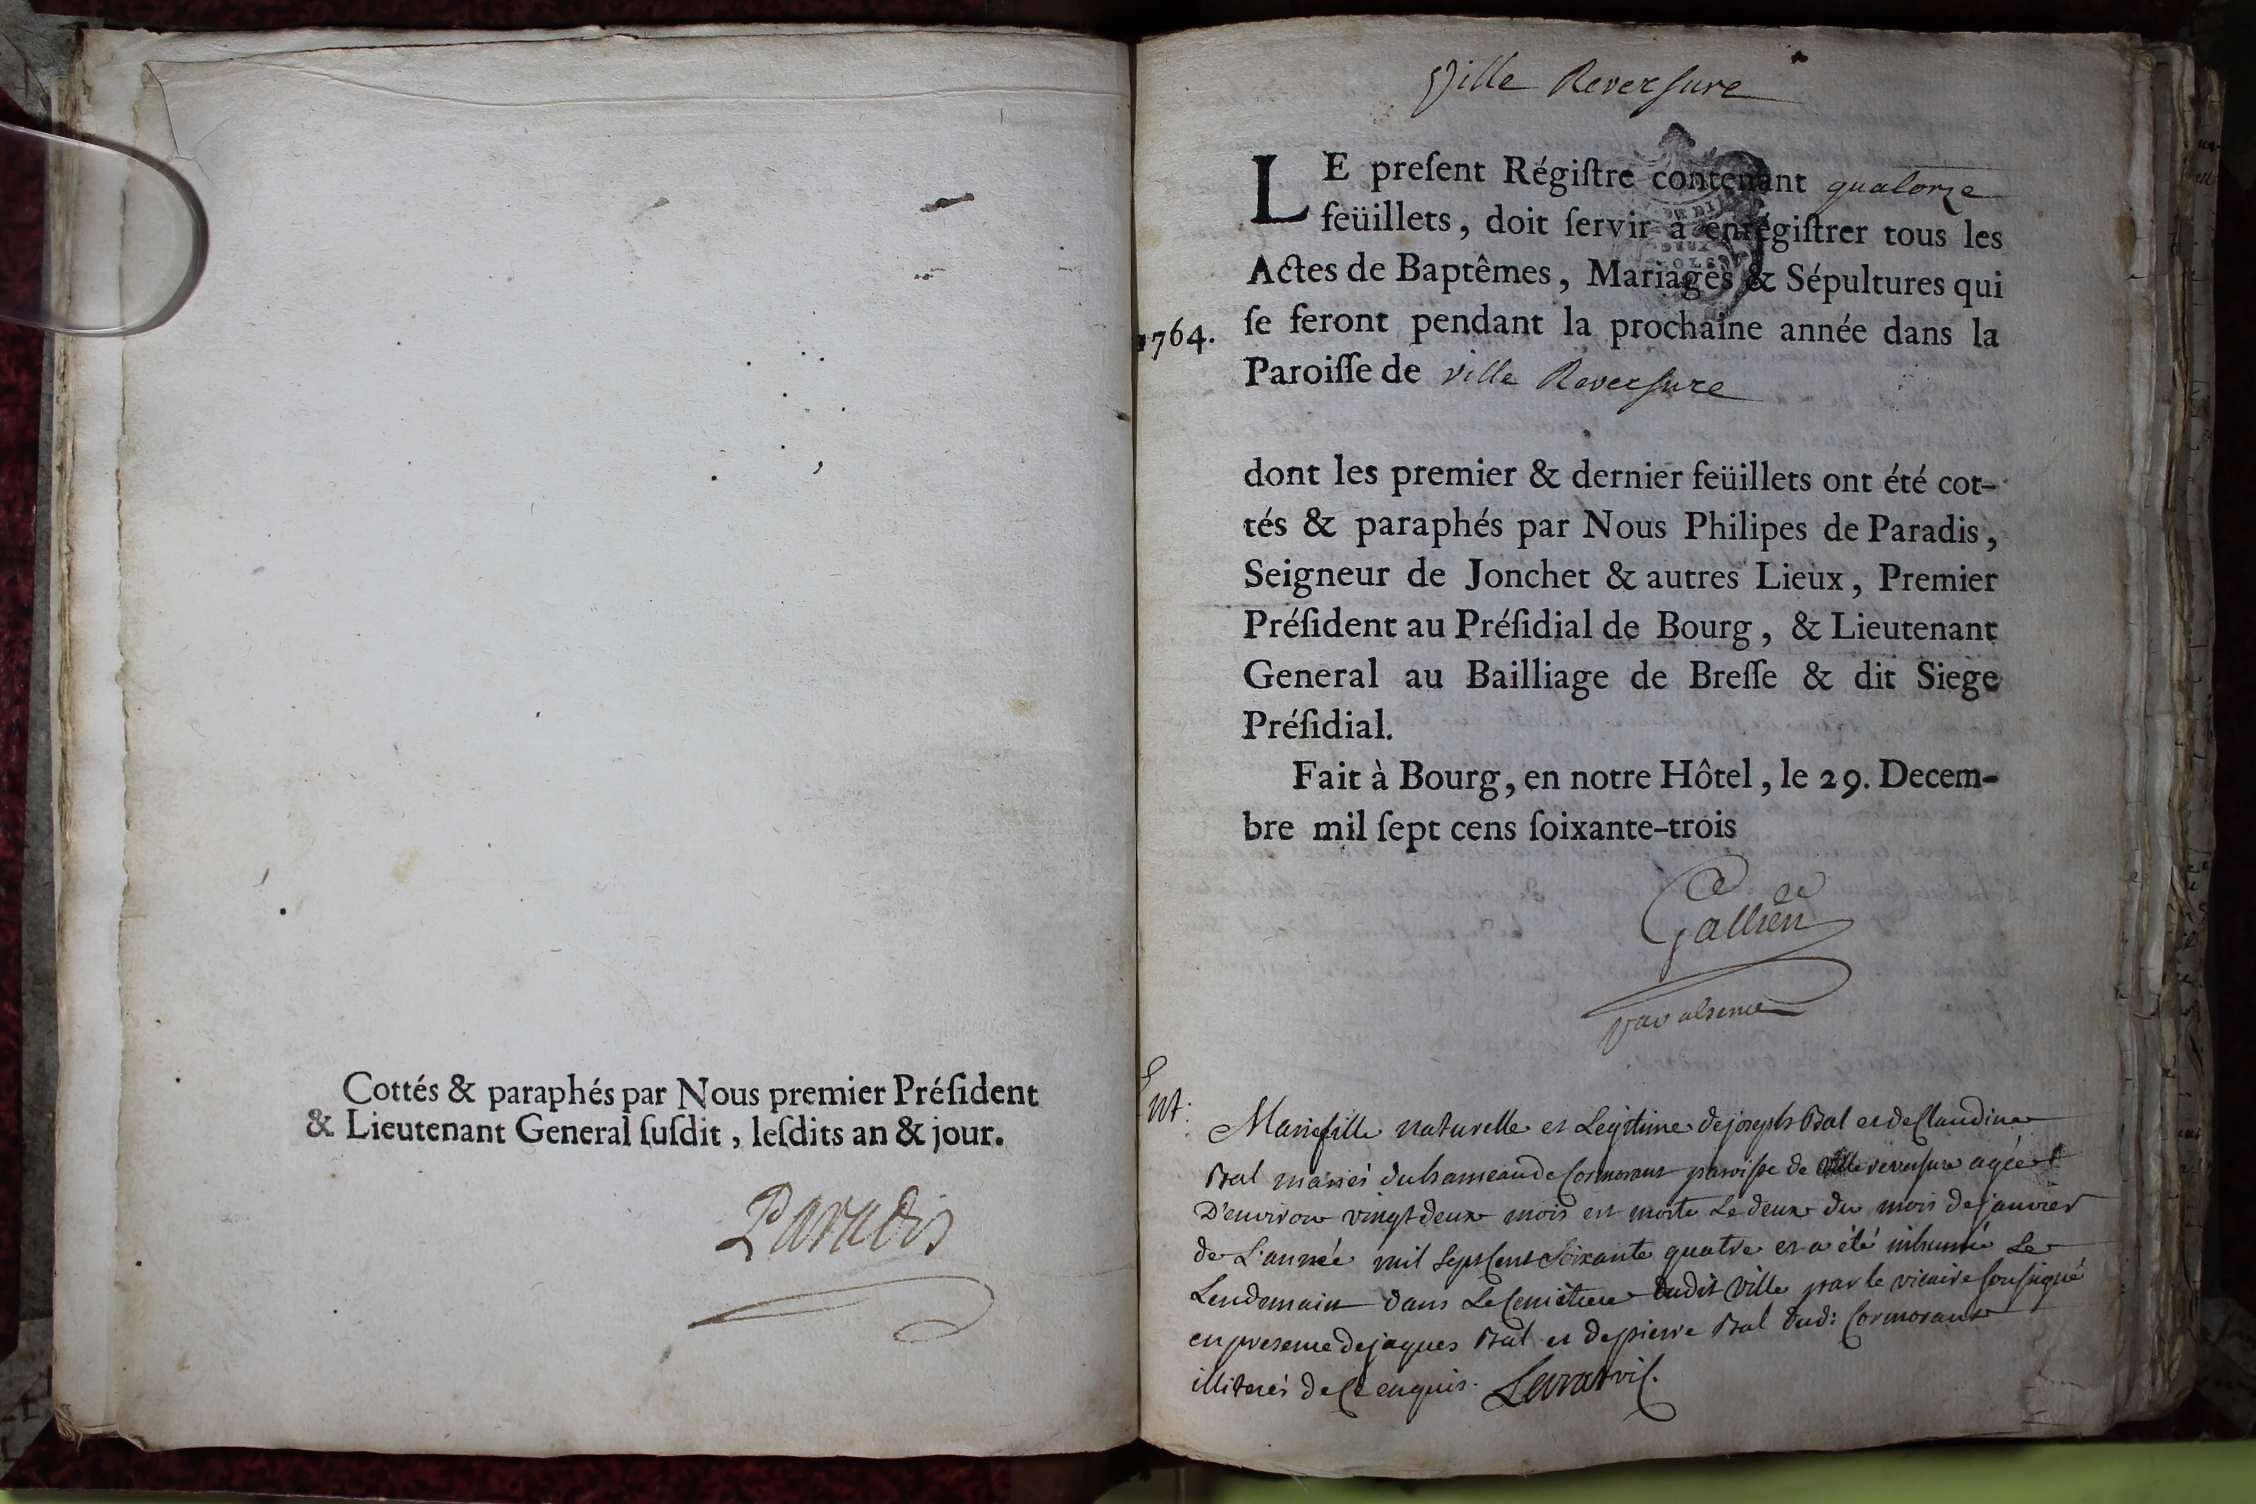 Cottés & paraphés par Nous premier Préſident
& Lieutenant General ſuſdit, leſdits an & jour.
Paradis
ville Reverſure
LE preſent Régiſtre contenant quatorze
feüillets, doit ſervir à enrégiſtrer tous les
Actes de Baptêmes, Mariages & Sépultures qui
1764. ſe feront pendant la prochaine année dans la
Paroiſſe de ville Reverſure
dont les premier & dernier feüillets ont été cot-
tés & paraphés par Nous Philipes de Paradis,
Seigneur de Jonchet & autres Lieux, Premier
Préſident au Préſidial de Bourg, & Lieutenant
General au Bailliage de Breſſe & dit Siege
Préſidial.
Fait à Bourg, en notre Hôtel, le 29. Decem-
bre mil ſept cens ſoixante-trois
Gallien
Ent:
Marie fille naturelle et Legitime de joseph Bal et de Claudine
Bal mariés du hameau de Cormorant paroisse de ville reversure agée
D'environ vingt deux mois est morte Le deux du mois de janvier
de L'année mil sept Cent Soixante quatre et a été inhumé Le
Lendemain dans Le Cemitiere dudit Ville par le vicaire sousigné
en presence de jaques Bal et de pierre Bal dud: Cormorant
illiterés de Ce enquis. Levrat vic.